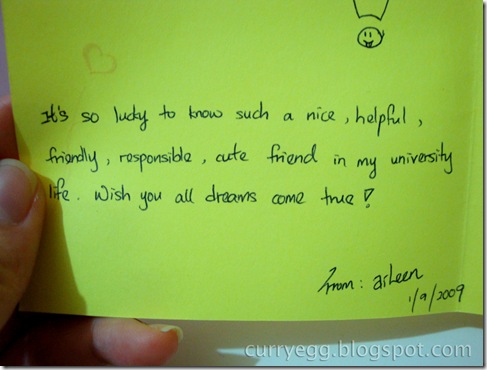 It's so lucky to know such a nice, helpful,
friendly, responsible, cute friend in my university
life. Wish you all dreams come true!
From: aileen
1/9/2009
curryegg.blogspot.com